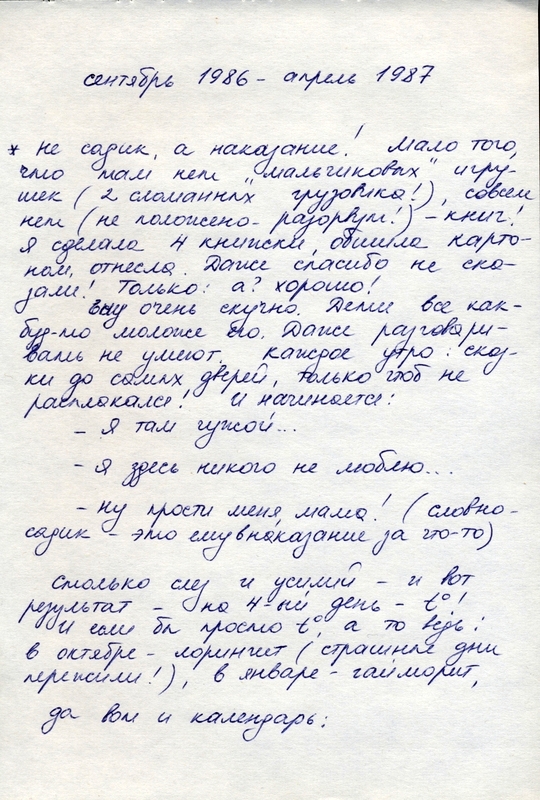 сентябрь 1986 - апрель 1987
* не садик, а наказание! Мало того,
что там нет "мальчиковых" игру-
шек (2 сломанных грузовика!), совсем
нет (не положено - разорвут!) - книг!
Я сделала 4 книжки, обшила карто-
ном, отнесла. Даже спасибо не ска-
зали! Только: а? хорошо!
Ему очень скучно. Дети все как-
будто моложе его. Даже разговари-
вать не умеют. Каждое утро: сказ-
ки до самых дверей, только чтоб не
расплакался! И начинается:
- Я там чужой...
- я здесь никого не люблю...
- ну прости меня мама! (словно-
садик - это ему в наказание за что-то)
Столько слез и усилий - и вот
результат - на 4-ый день - t°!
И если бы просто t°, а то ведь:
в октябре - ларингит (страшные дни
пережили!), в январе - гайморит,
да вот и календарь: